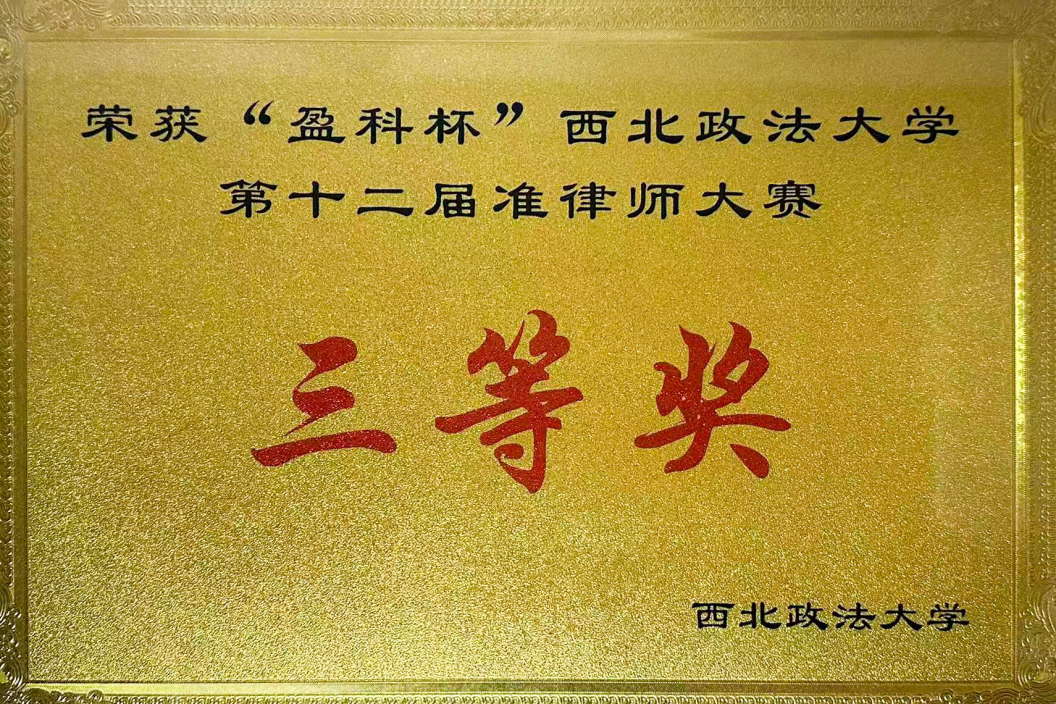 荣获“盈科杯”西北政法大学
第十二届准律师大赛
三等奖
西北政法大学